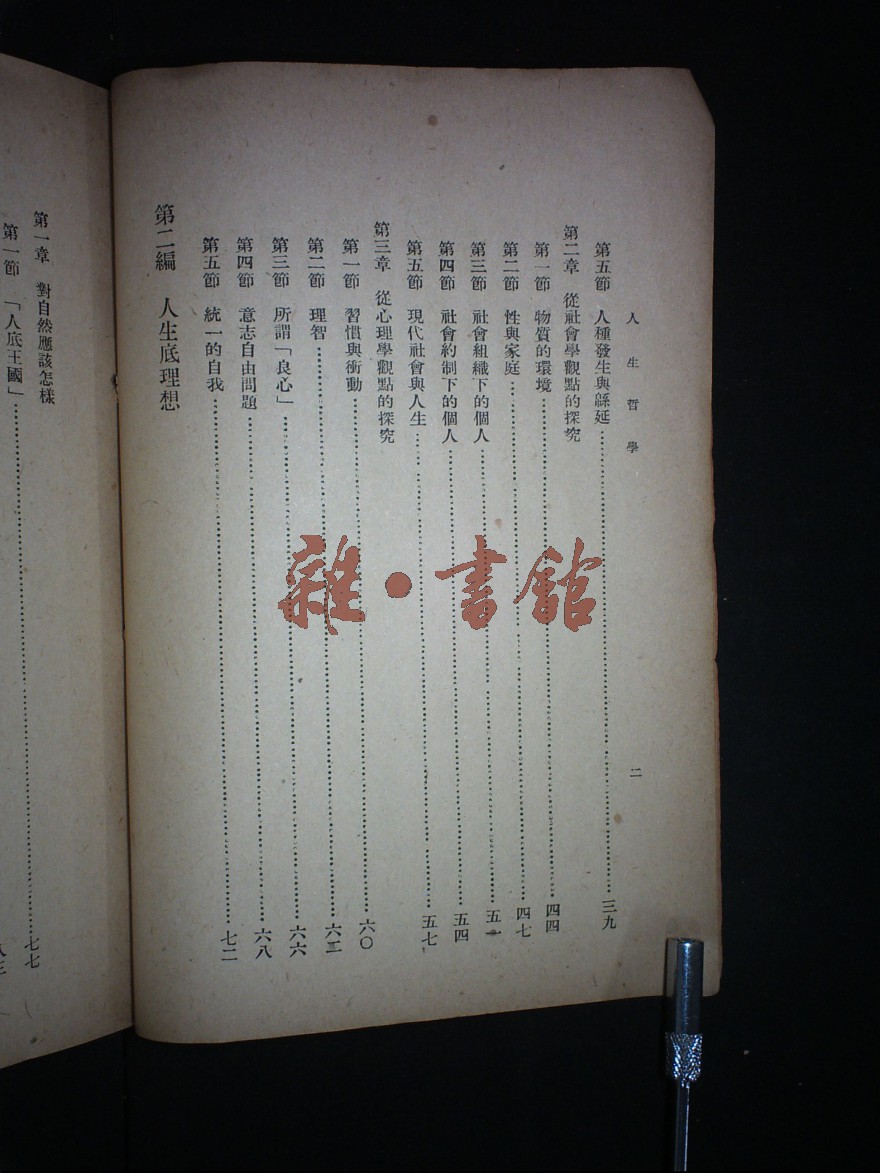 人生哲學
二
第五節 人種發生與緜延……三九
第二章 從社會學觀點的探究
第一節 物質的環境……四四
第二節 性與家庭……四七
第三節 社會組織下的個人……五一
第四節 社會約制下的個人……五四
第五節 現代社會與人生……五七
第三章 從心理學觀點的探究
第一節 習慣與衝動……六〇
第二節 理智……六三
第三節 所謂「良心」……六六
第四節 意志自由問題……六八
第五節 統一的自我……七二
第二編 人生底理想
第一章 對自然應該怎樣
第一節 「人底王國」……七七
雜·書館